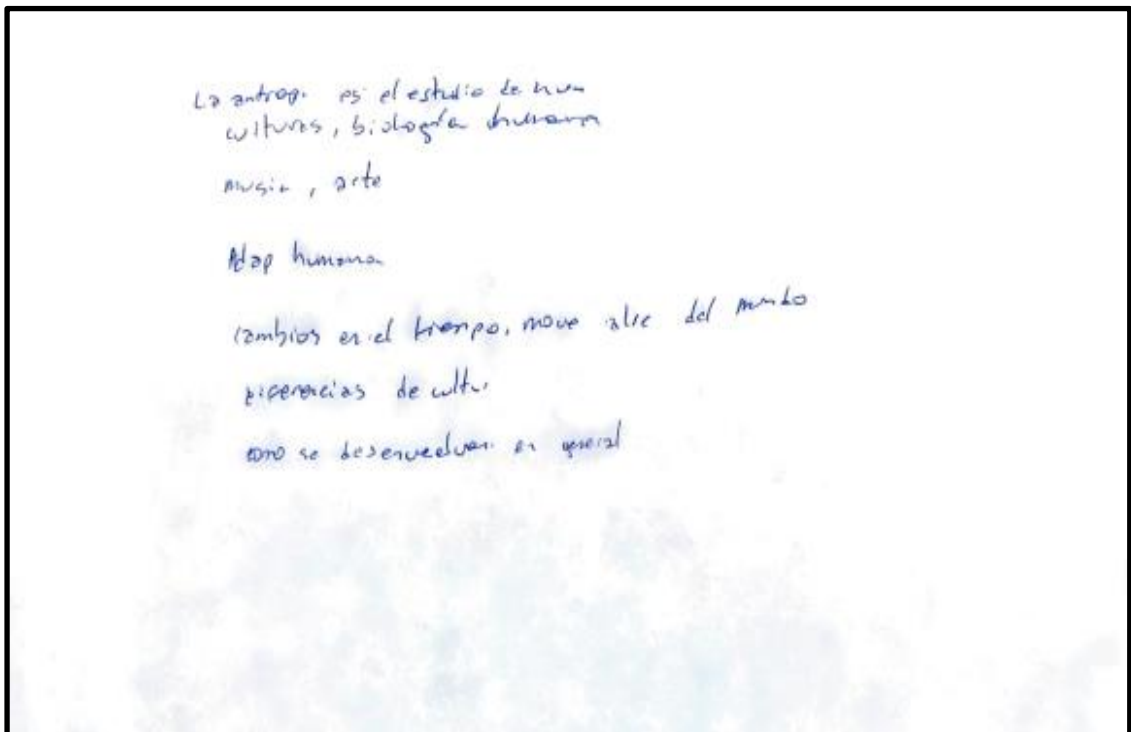 La antrop. es el estudio de hum
culturas, biología humana
music, arte
Adap humana
cambios en el tiempo, move alre del mundo
diferencias de cultu.
como se desenvuelven en general